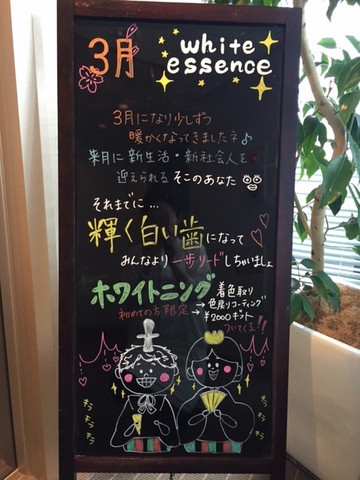 3月
white
essence
3月になり少しずつ
暖かくなってきましたネ♪
来月に新生活・新社会人を
迎えられるそこのあなた
それまでに…
輝く白い歯になって
みんなより一歩リードしちゃいましょ
ホワイトニング
初めての方限定
着色取り
→色戻りコーティング
→¥2000ギフト
ついてくる!!
キラキラ
キラキラ